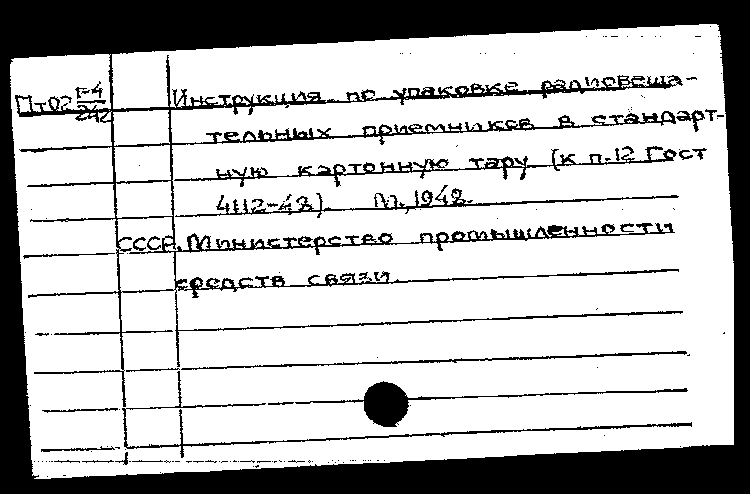 Пт02 Г-4/242 Инструкция по упаковке радиовеща-
тельных приемников в стандарт-
ную картонную тару (к п.12 Гост
4112-48). М., 1948.
СССР. Министерство промышленности
средств связи.